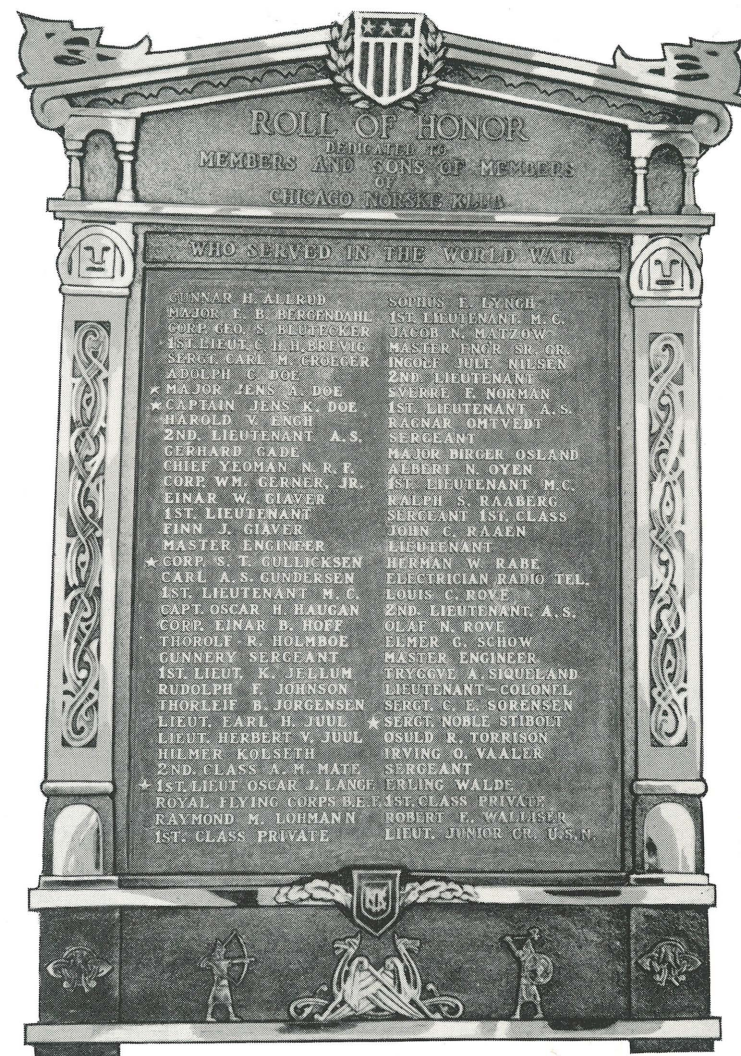 ROLL OF HONOR
DEDICATED TO
MEMBERS AND SONS OF MEMBERS
OF
CHICAGO NORSKE KLUB
WHO SERVED IN THE WORLD WAR
GUNNAR H. ALLRUD
MAJOR E. B. BERGENDAHL
CORP. GEO. S. BLUTECKER
1ST. LIEUT. C. H. H. BREVIG
SERGT. CARL M. CROEGER
ADOLPH C. DOE
★ MAJOR JENS A. DOE
★ CAPTAIN JENS K. DOE
HAROLD V. ENGH
2ND. LIEUTENANT A. S.
GERHARD GADE
CHIEF YEOMAN N. R. F.
CORP. WM. GERNER, JR.
EINAR W. GIAVER
1ST. LIEUTENANT
FINN J. GIAVER
MASTER ENGINEER
★ CORP. S. T. GULLICKSEN
CARL A. S. GUNDERSEN
1ST. LIEUTENANT M. C.
CAPT. OSCAR H. HAUGAN
CORP. EINAR B. HOFF
THOROLF R. HOLMBOE
GUNNERY SERGEANT
1ST. LIEUT. K. JELLUM
RUDOLPH F. JOHNSON
THORLEIF B. JORGENSEN
LIEUT. EARL H. JUUL
LIEUT. HERBERT V. JUUL
HILMER KOLSETH
2ND. CLASS A. M. MATE
★ 1ST. LIEUT OSCAR J. LANGE
ROYAL FLYING CORPS B.E.F.
RAYMOND M. LOHMANN
1ST. CLASS PRIVATE
SOPHUS E. LYNGH
1ST. LIEUTENANT M. C.
JACOB N. MATZOW
MASTER ENGR. SR. GR.
INGOLF JULE NILSEN
2ND LIEUTENANT
SVERRE F. NORMAN
1ST. LIEUTENANT A. S.
RAGNAR OMTVEDT
SERGEANT
MAJOR BIRGER OSLAND
ALBERT N. OYEN
1ST. LIEUTENANT M.C.
RALPH S. RAABERG
SERGEANT 1ST. CLASS
JOHN C. RAAEN
LIEUTENANT
HERMAN W. RABE
ELECTRICIAN RADIO TEL.
LOUIS C. ROVE
2ND. LIEUTENANT. A. S.
OLAF N. ROVE
ELMER G. SCHOW
MASTER ENGINEER
TRYGGVE A. SIQUELAND
LIEUTENANT-COLONEL
SERGT. C. E. SORENSEN
★ SERGT. NOBLE STIBOLT
OSULD R. TORRISON
IRVING O. VAALER
SERGEANT
ERLING WALDE
1ST. CLASS PRIVATE
ROBERT E. WALLISER
LIEUT. JUNIOR GR. U.S.N.